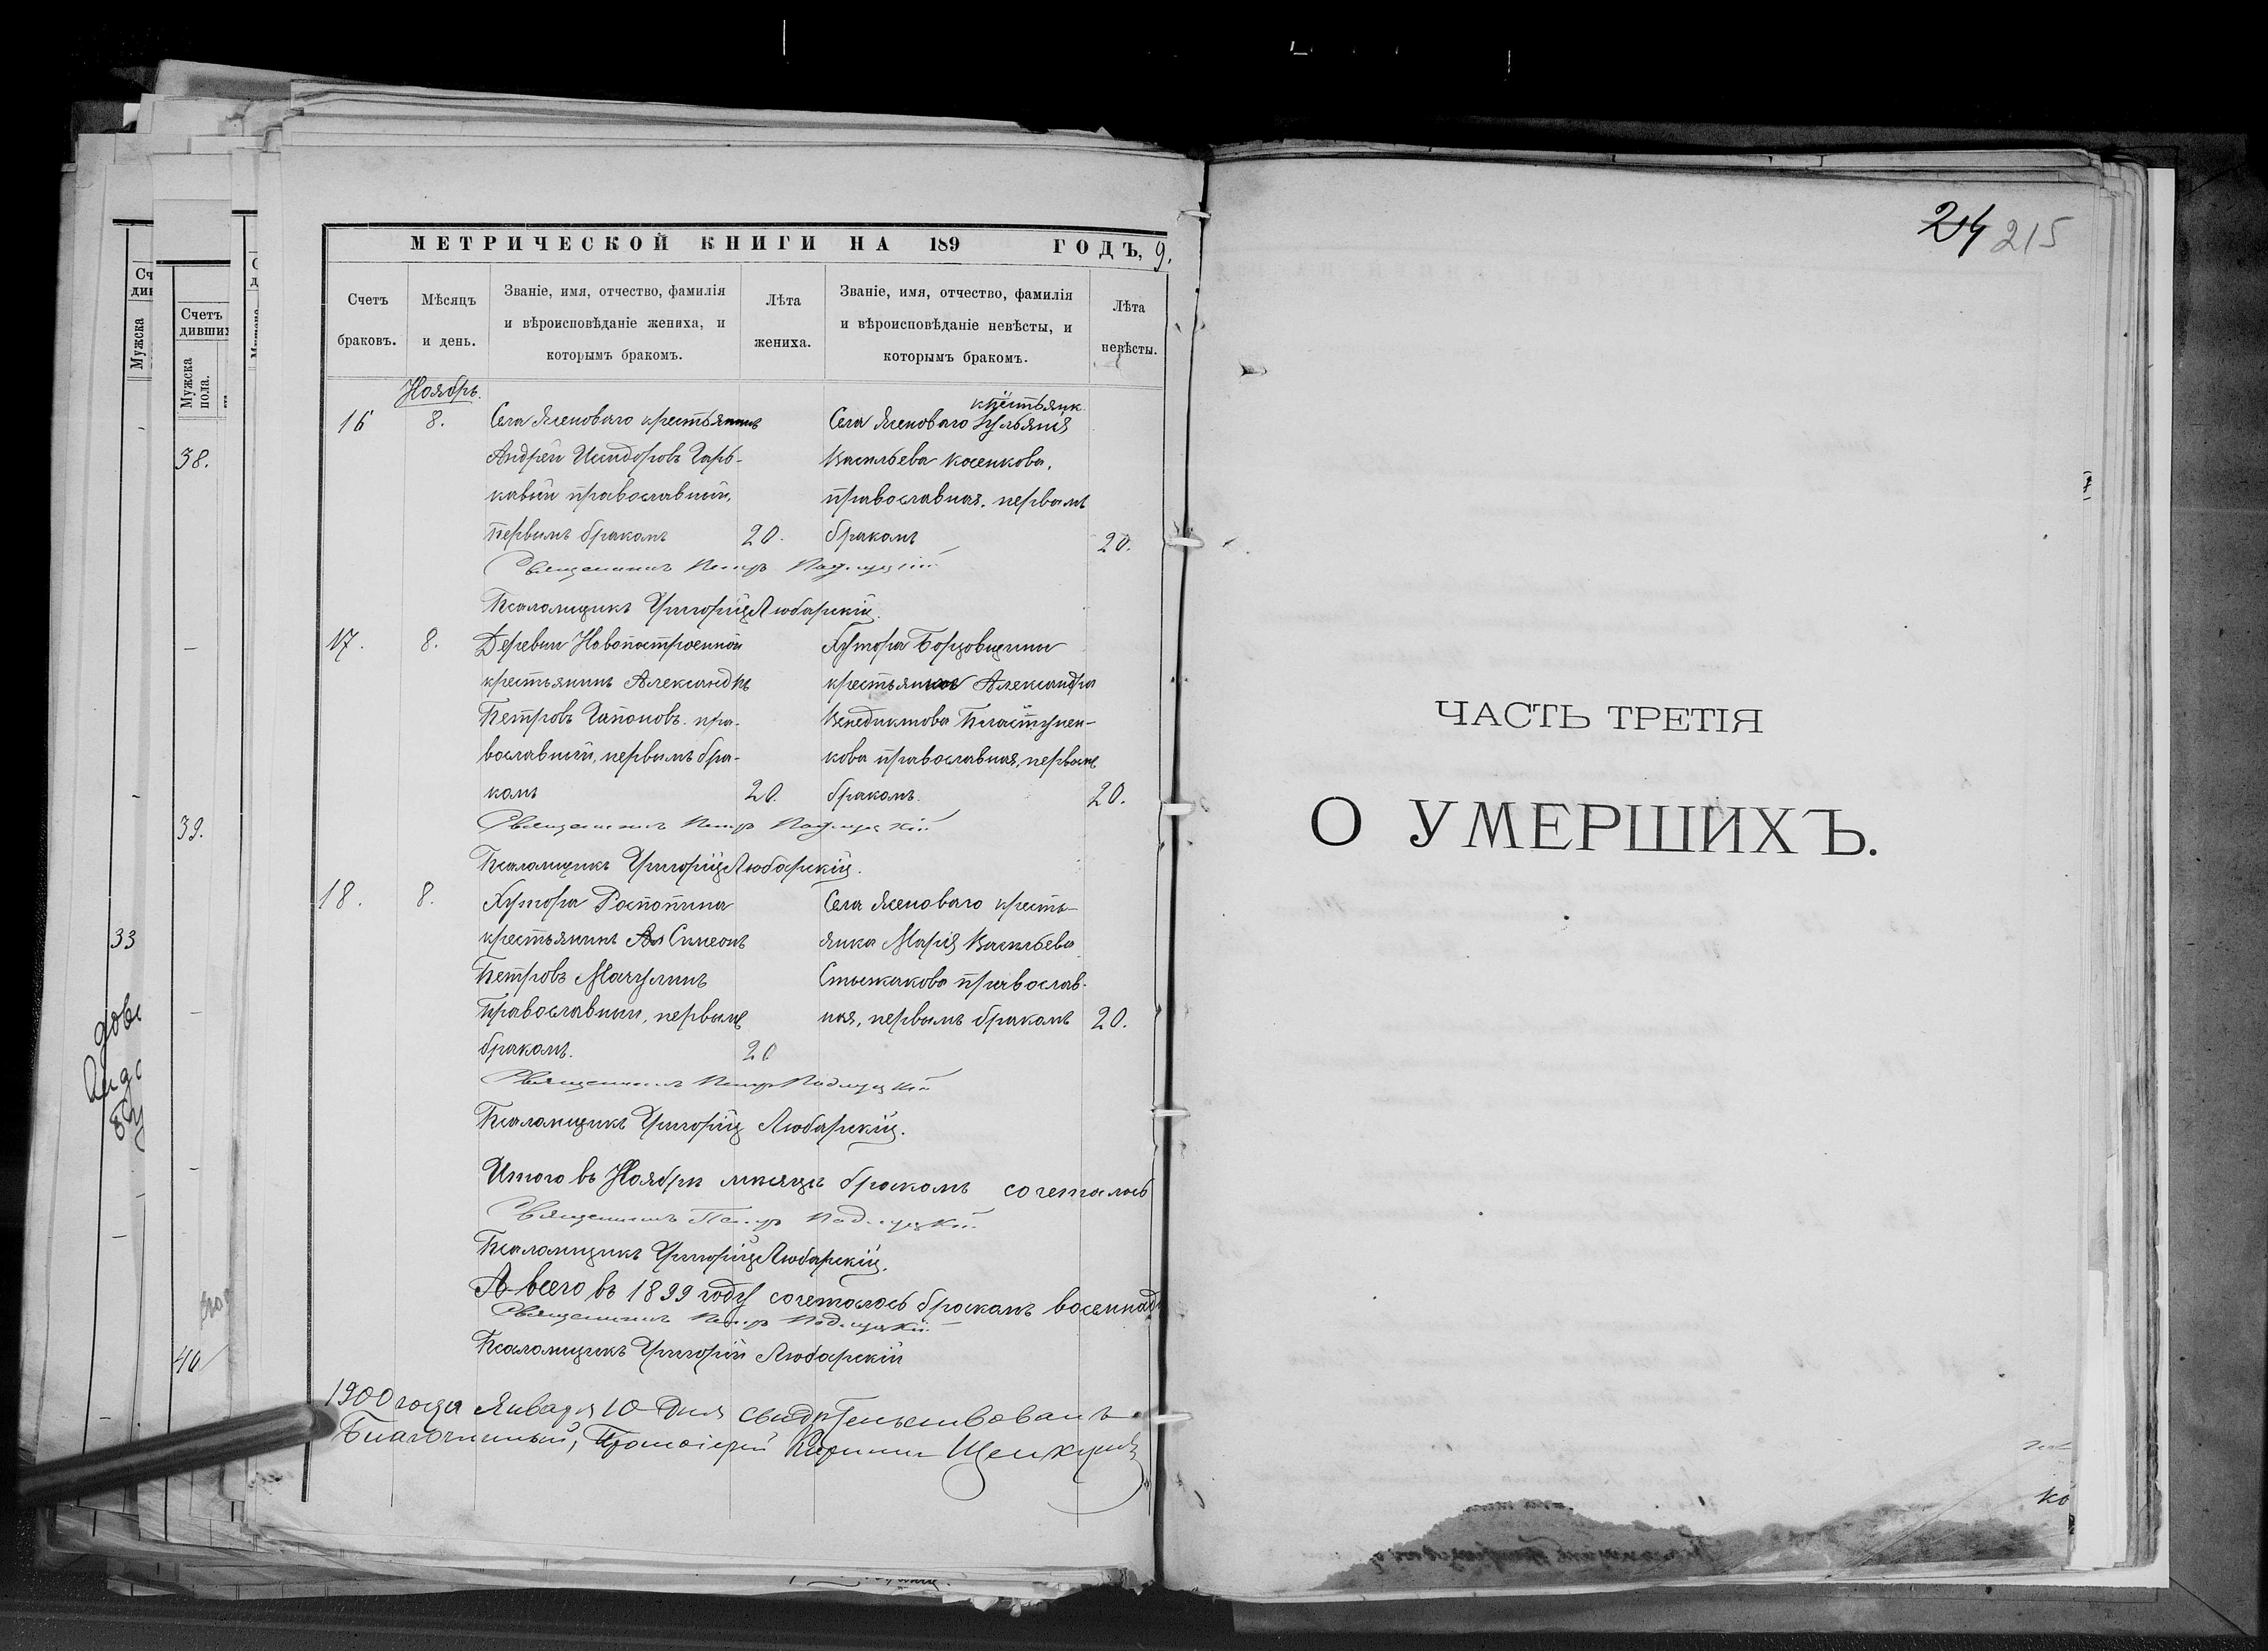 МЕТРИЧЕСКОЙ КНИГИ НА 1899 ГОДЪ,
Счетъ браковъ.
Мѣсяцъ и день.
Званіе, имя, отчество, фамилія
и вѣроисповѣданіе жениха, и
которымъ бракомъ.
Лѣта жениха.
Званіе, имя, отчество, фамилія
и вѣроисповѣданіе невѣсты, и
которымъ бракомъ.
Лѣта невѣсты.
Ноябрь.
16
8.
Села Ясеноваго крестьянинъ
Андрей Исидоровъ Гарь-
кавый православный,
первымъ бракомъ
20.
крестьянк.
Села Ясеноваго Ульянія
Васильева Косенкова,
православная, первымъ
бракомъ
20.
Священникъ Петръ
Псаломщикъ Григорій Любарскій.
17.
8.
Деревни Новопостроенной
крестьянинъ Александръ
Петровъ Гапоновъ пра-
вославный, первымъ бра-
комъ
20.
Хутора Борзовщины
крестьянка Александра
Венедиктова
кова православная, первымъ
бракомъ.
20.
Священникъ Петръ
Псаломщикъ Григорій Любарскій.
18.
8.
Хутора Распопина
крестьянинъ Симеонъ
Петровъ Мачулинъ
Православный, первымъ
бракомъ.
20
Села Ясеноваго кресть-
янка Марія Васильева
православ-
ная, первымъ бракомъ
20.
Священникъ Петръ
Псаломщикъ Григорій Любарскій.
Итого въ Ноябрѣ мѣсяцѣ бракомъ сочеталось
Священникъ Петръ
Псаломщикъ Григорій Любарскій.
А всего въ 1899 году сочеталось бракомъ восемнадц
Священникъ Петръ
Псаломщикъ Григорій Любарскій
1900 года Января 10 дня свидѣтельствовалъ
Благочинный, Протоіерей
38.
39.
40
33
Счетъ
дивших
Мужска
пола.
Мужска
215
ЧАСТЬ ТРЕТІЯ
О УМЕРШИХЪ.